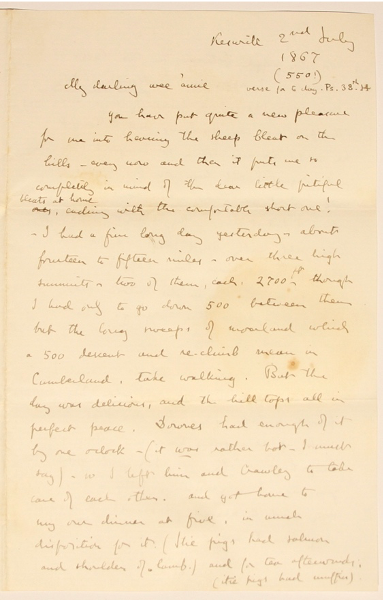 Keswick 2nd July
1867
(550!)
My darling wee 'amie
verse for to day. Ps. 38th.
you have put quite a new pleasure
for me into hearing the sheep bleat on the
hills – every now and then it puts me so
completely in mind of the dear little pitiful
bleats at home
ending with the comfortable short one!
– I had a fine long day yesterday – about
fourteen to fifteen miles – over three high
summits – two of them, each 2700 ft though
I had only to go down 500 between them
but the long sweeps of moorland which
a 500 descent and re-climb mean in
Cumberland, take walking. But the
day was delicious, and the hill tops all in
perfect peace. Downes had enough of it
by one o'clock – (it was rather hot – I must
say) – so I left him and Crawley to take
care of each other. and got home to
my own dinner at five, in much
disposition for it. (The pigs had salmon
and shoulder of lamb.) and for tea afterwards.
(the pigs had muffins).